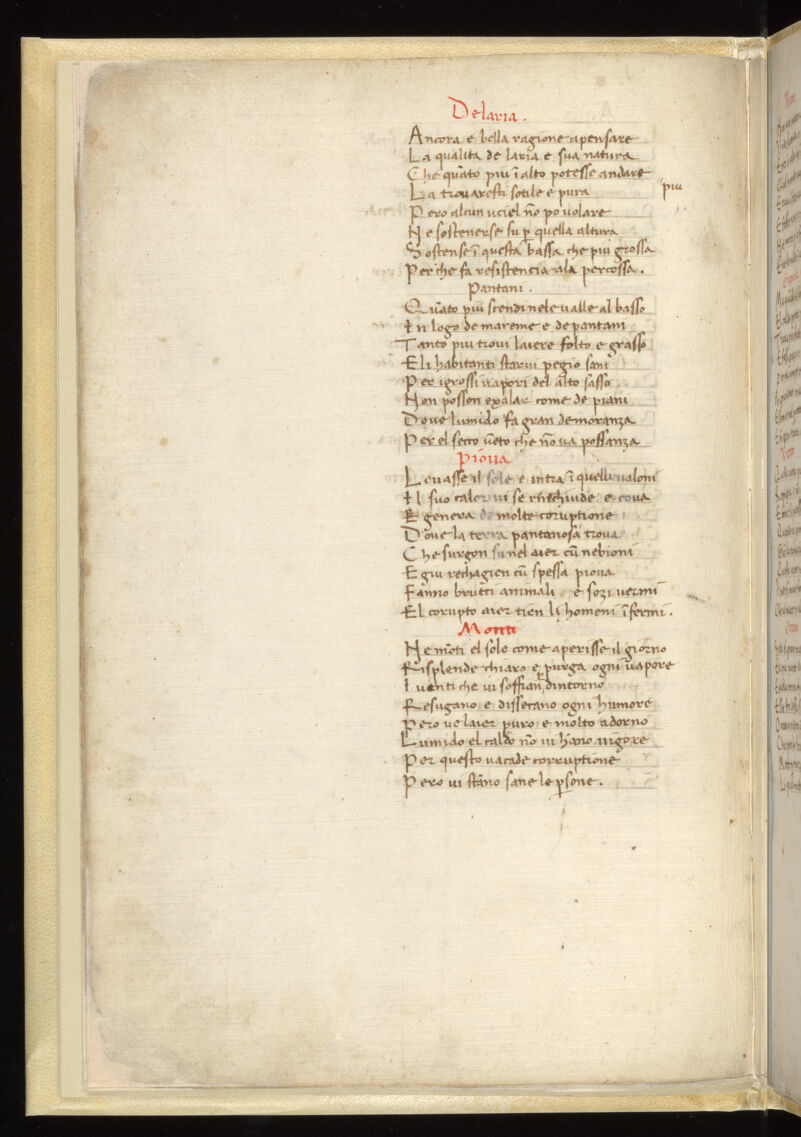 Delaria .
Ancora e bella ragione apensare
La qualita de laria e sua natura
Che qūato piu ī alto potesse andare
La trouaresti sotile e piu pura
Pero alcun uciel nō po uolare
Ne sostenerse su p̄ quella altura
Sostense ī questa bassa che piu grossa
Perche fa resistencia ala percossa .
Pantani .
Qūato piu scendi nele ualle al basso
In logo de mareme e de pantani
Tanto piu troui laiere folto e grasso
E li habitanti starui pegio sani
Per igrossi uapori del alto sasso
Non posson exalar come de piani
Doue lumido fa gran demoranza
Per el serro uēto che nō ua possanza
Pioua
Leuasse il sole e intra ī quelli ualoni
Il suo calor ui se rinchiude e coua
E genera de molte coruptione
Doue la terra pantanosa troua
Che surgon su nel aier cū nebioni
E giu rechagien cū spessa pioua
Fanno brutti animali e sozi uermi
El corupto aier tien li homeni ī fermi .
Monti
Ne mōti el sole come aperisse il giorno
Risplende chiaro e purga ogni uapore
I uenti che ui soffian dintorno
Resugano e disseccano ogni humore
Pero ue laier puro e molto adorno
Lumido el caldo nō ui hāno uigore
Per questo uacade corruptione
Pero ui stāno sane le p̄sone .